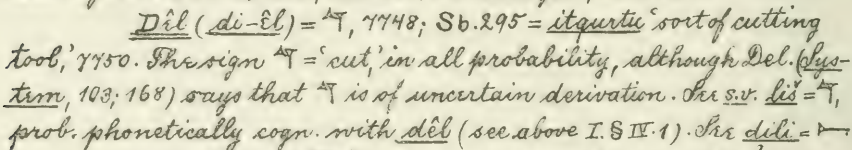 Dîl (di-êl) = 𒇺, 7748; Sb. 295 = itqurtu ‘sort of cutting
tool,’ 7750. The sign 𒇺 = ‘cut,’ in all probability, although Del. (Sys-
tem, 103; 168) says that 𒇺 is of uncertain derivation. See s.v. liš = 𒇺,
prob. phonetically cogn. with dêl (see above I. § IV. 1). See dili = 𒀸